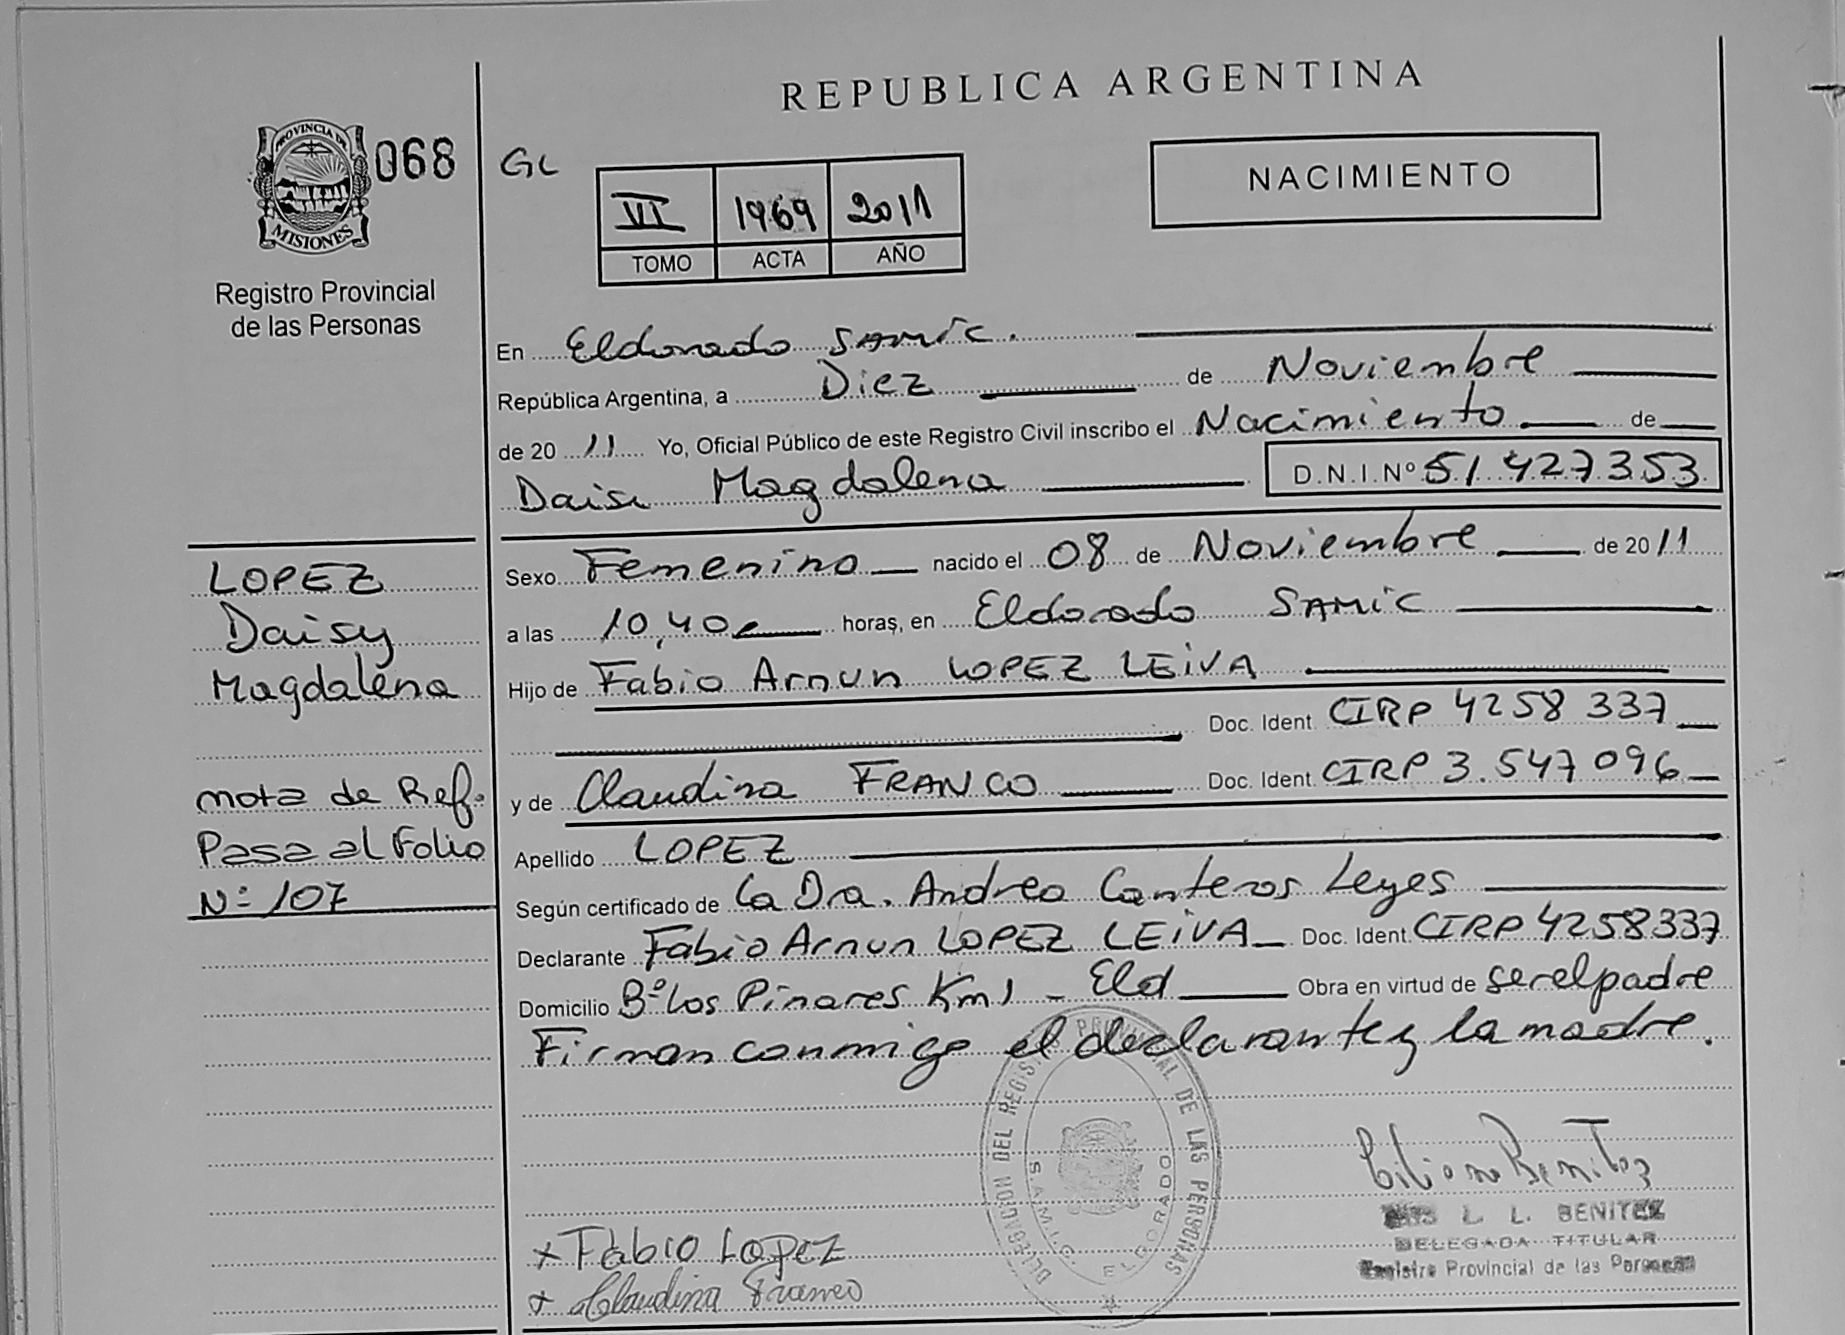 REPUBLICA ARGENTINA
PROVINCIA DE
MISIONES
068
GL
Registro Provincial
de las Personas
VI 1969 2011
TOMO ACTA AÑO
NACIMIENTO
En Eldorado SAMIC.
República Argentina, a Diez de Noviembre
de 20 11 Yo, Oficial Público de este Registro Civil inscribo el Nacimiento de
Daisy Magdalena D.N.I.Nº 51.427.353
LOPEZ
Daisy
Magdalena
nota de Ref.
Pasa al Folio
Nº 107
Sexo Femenino nacido el 08 de Noviembre de 2011
a las 10,40 horas, en Eldorado SAMIC
Hijo de Fabio Arnun LOPEZ LEIVA
Doc. Ident. CIRP 4258 337
y de Claudina FRANCO Doc. Ident. CIRP 3.547 096
Apellido LOPEZ
Según certificado de la Dra. Andrea Canteros Leyes
Declarante Fabio Arnun LOPEZ LEIVA Doc. Ident. CIRP 4258337
Domicilio Bº Los Pinares Km 1 - Eld Obra en virtud de ser el padre
Firman conmigo el declarante y la madre.
DELEGACION DEL REGISTRO PROVINCIAL DE LAS PERSONAS
S.A.M.I.C. ELDORADO
Benitez
L. L. BENITEZ
DELEGADA TITULAR
Registro Provincial de las Personas
x Fabio Lopez
x Claudina Franco